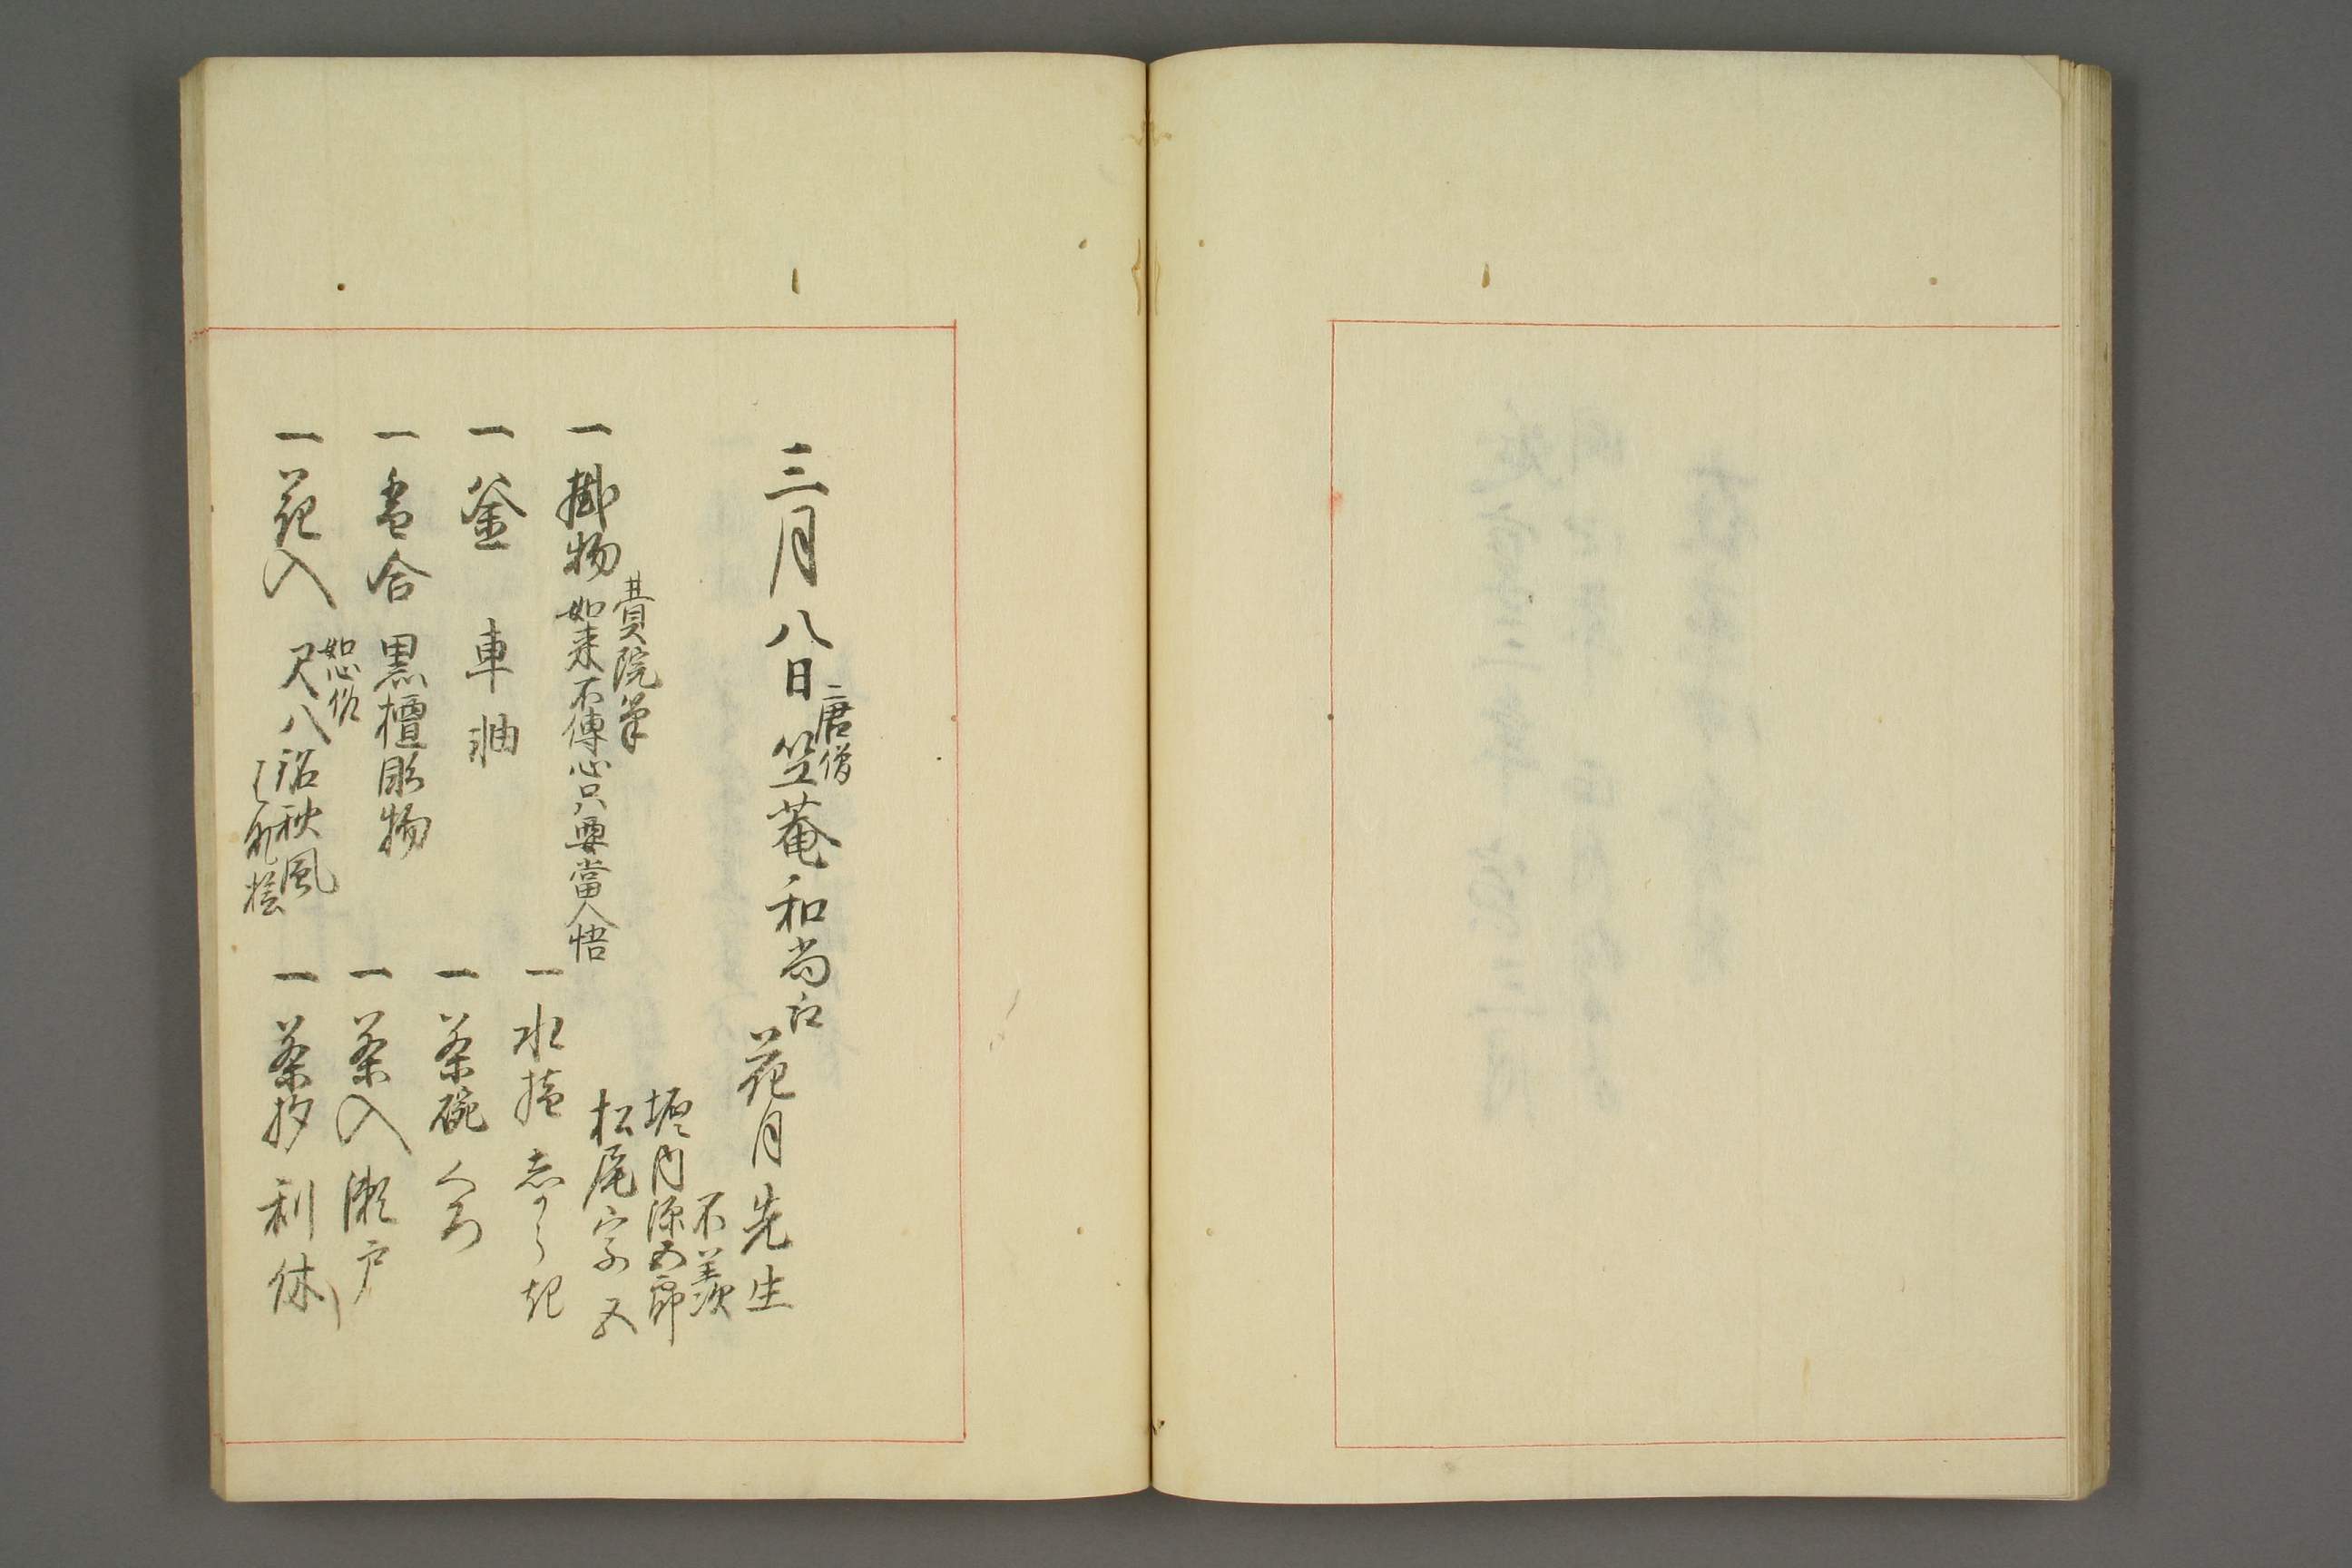 三月八日 唐僧 竺菴和尚江
花月先生
不羨
堀内源五郎
松尾宗五
一掛物 費院筆
如来不傳心只要當人悟
一釜 車軸
一香合 黒檀彫物
一花入 如心作
尺八 銘秋風
一水指 志からき
一茶碗
一茶入 瀬戸
一茶杓 利休